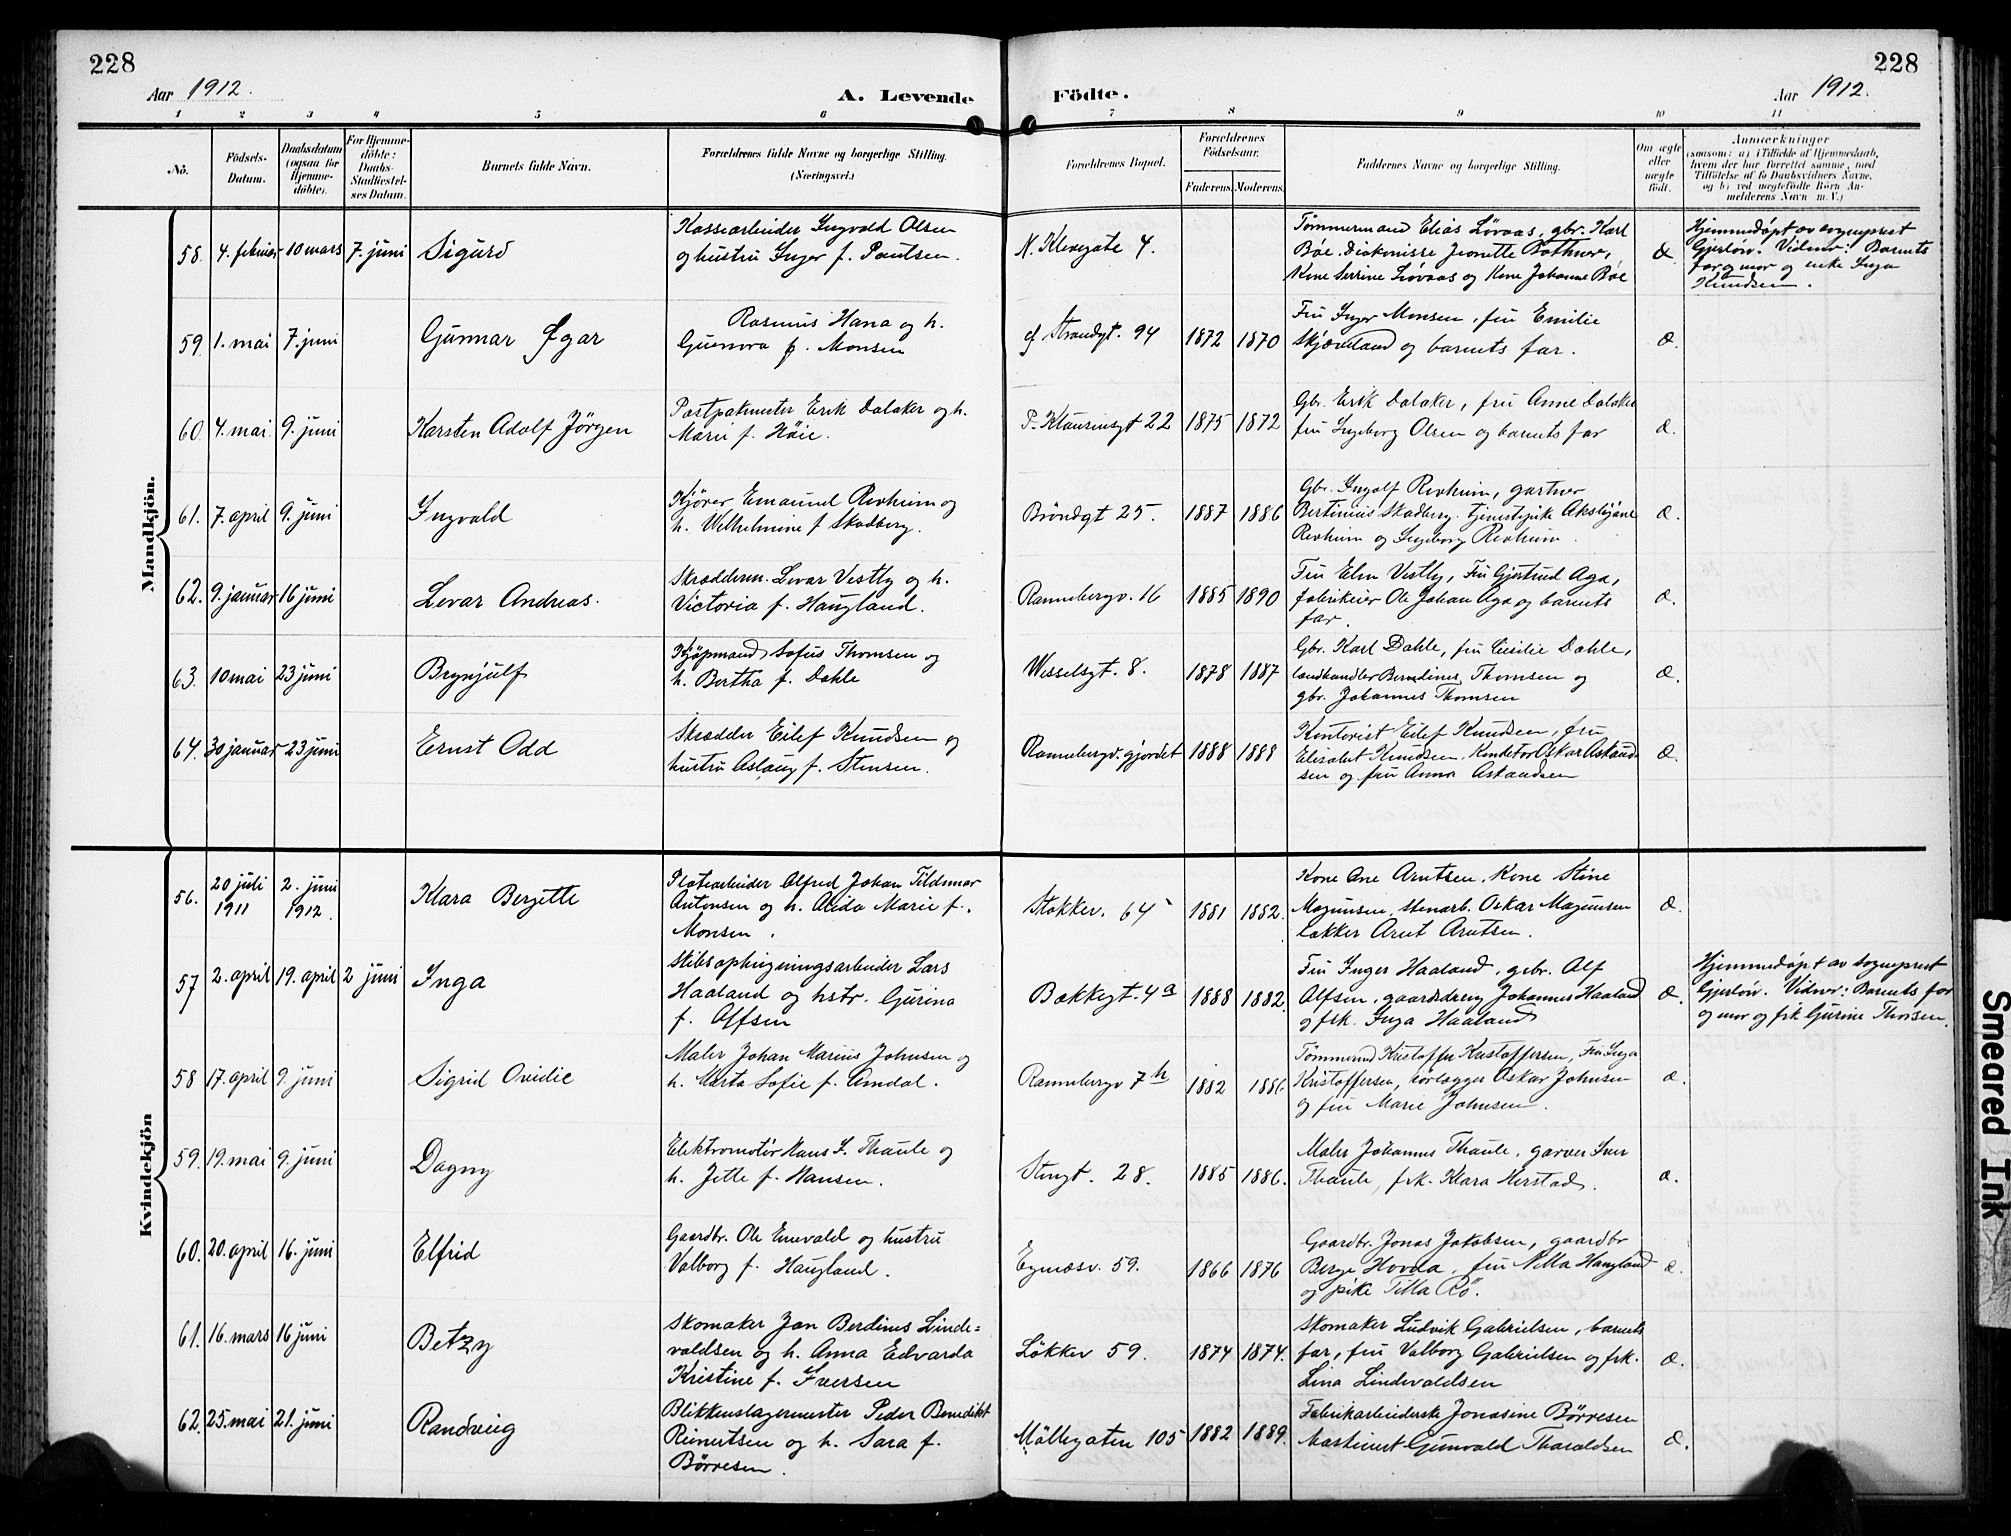 228
228
Aar 1912.
A. Levende Födte.
Aar 1912.
1 2 3 4 5 6 7 8 9 10 11
No.
Födsels-Datum.
Daabsdatum (ogsaa for Hjemme-döbte).
For Hjemme-döbte: Daabs-Stadfæstel-ses Datum.
Barnets fulde Navn.
Forældrenes fulde Navne og borgerlige Stilling. (Næringsvei.)
Forældrenes Bopæl.
Forældrenes Födselsaar.
Faderens. Moderens.
Faddernes Navne og borgerlige Stilling.
Om ægte eller uægte födt.
Anmærkninger
(saasom: a) i Tilfælde af Hjemmedaab,
hvem der har forrettet samme, med
Tilföielse af to Daabsvidners Navne,
og b) ved uægtefödte Börn An-
melderens Navn m. V.)
Mandkjön.
58. 4. februar 10 mars 7. juni Sigurd
Kassearbeider Ingvald Olsen
og hustru Inger f. Poulsen.
N. Klevegate 4.
Tømmermand Elias Løvaas, gbr. Karl
Bøe, Diakonisse Jeanette Bothner,
Kone Serine Løvaas og Kone Johanne Bøe
Æ
Hjemmedøpt av sogneprest
Gjerløv. Vidner: Barnets
far og mor og enke Inga
Knudsen.
59. 1. mai 7. juni Gunnar Egar
Rasmus Hana og h.
Gunvora f. Monsen
Strandgt. 94 1872 1870
Fru Inger Monsen, fru Emilie
Skjæveland og barnets far.
Æ.
60. 4. mai 9. juni Karsten Adolf Jörgen
Postpakmester Erik Dalaker og h.
Marie f. Høie.
P. Klausensgt 22 1875 1872
Gbr. Erik Dalaker, fru Anne Dalaker
fru Ingeborg Olsen og barnets far
Æ.
61. 7. april 9. juni Ingvald
Kjörer Emanuel Revheim og
h. Wilhelmine f. Skadberg.
Bröndgt 25. 1887 1886
Gbr. Ingolf Revheim, gartner
Bertinius Skadberg, tjenestepike Akseliane
Revheim og Ingeborg Revheim.
Æ.
62. 9. januar 16 juni Levar Andreas.
Skrædderm. Levar Vestly og h.
Victoria f. Haugland.
Rannebergv. 16 1885 1890
Fru Elen Vestly, Fru Gjertrud Aga,
fabrikeier Ole Johan Aga og barnets
far.
Æ.
63. 10 mai 23 juni Brynjulf
Kjøpmand Sofus Thomsen og
h. Bertha f. Dahle
Wesselsgt. 8. 1878 1887
Gbr. Karl Dahle, fru Cecilie Dahle,
landhandler Berndines Thomsen og
gbr. Johannes Thomsen
Æ.
64. 30 januar 23 juni Ernst Odd
Skrædder Eilef Knudsen og
hustru Aslaug f. Stensen.
Rannebergv. gjordet 1888 1888
Kontorist Eilef Knudsen, fru
Elisabet Knudsen, Konditor Oskar Askaud-
sen og fru Anna Askaudsen
Æ.
Kvindekjön
56. 20 juli 1911 2. juni 1912. Klara Bergitte
Platearbeider Alfred Johan Tildemar
Antonsen og h. Alida Marie f.
Monsen.
Stokkev. 64 1881 1882.
Kone Ane Arntsen, Kone Stine
Magnusen, stenarb. Oskar Magnusen
løkker Arnt Arntsen.
Æ.
57 2. april 19. april 2 juni Inga
Skibsophugningsarbeider Lars
Haaland og hstr. Gurina
f. Alfsen
Bækkegt. 4a 1888 1882.
Fru Inger Haaland, gbr. Alf
Alfsen, gaardsdreng Johannes Haaland
og frk. Inga Haaland
Æ.
Hjemmedøpt av sogneprest
Gjerløv. Vidner: Barnets far
og mor og frk Gurine Thorsen.
58 17. april 9. juni Sigrid Ovidie
Maler Johan Marius Johnsen og
h. Marta Sofie f. Omdal.
Rannebergv 7h 1882 1886
Tømmermd Kristoffer Kristoffersen, Fru Inga
Kristoffersen, rørlægger Oskar Johnsen
og fru Marie Johnsen.
Æ.
59. 19. mai 9. juni Dagny
Elektromotör Hans S. Thaule og
h. Jette f. Hansen.
Stengt. 28. 1885 1886.
Maler Johannes Thaule, garver Iver
Thaule, frk. Klara Herstad.
Æ.
60. 20. april 16. juni Elfrid
Gaardbr. Ole Enevald og hustru
Valborg f. Haugland.
Eganæsv. 59. 1866 1876
Gaardbr. Jonas Jakobsen, gaardbr
Berge Hovda, fru Nilla Haugland
og pike Tilla Rö.
Æ.
61. 16. mars 16 juni Betzy
Skomaker Jan Berdines Linde=
valdsen og h. Anna Edvarda
Kristine f. Iversen
Løkkev 59. 1874 1874.
Skomaker Ludvik Gabrielsen, barnets
far, fru Valborg Gabrielsen og frk.
Lina Lindevaldsen
Æ.
62. 25. mai 21. juni Randveig
Blikkenslagermester Peder Benedikt
Reinertsen og h. Sara f.
Børresen.
Møllegaten 105 1882 1889.
Fabrikarbeiderske Jonasine Børresen
maskinist Gunvald Tharaldsen
Æ.
Smeared Ink